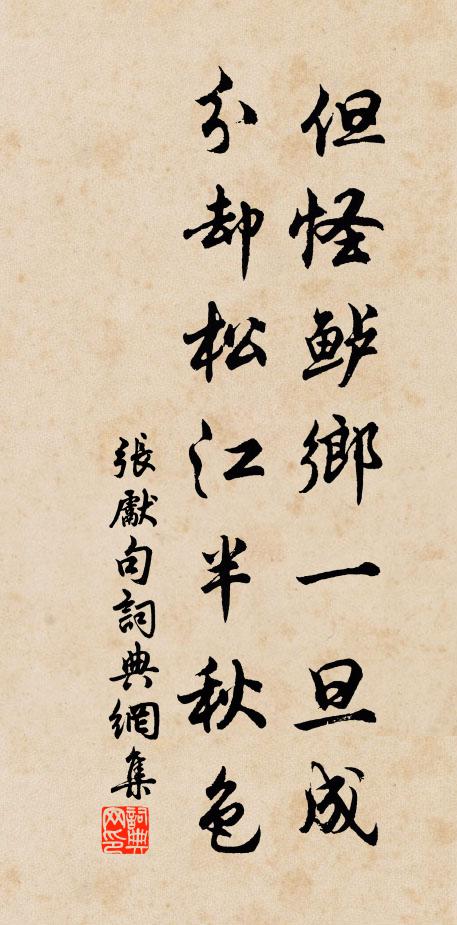 但怪鲈鄉一旦成
分却松江半秋色
張獻句詞典網集
詞典网印